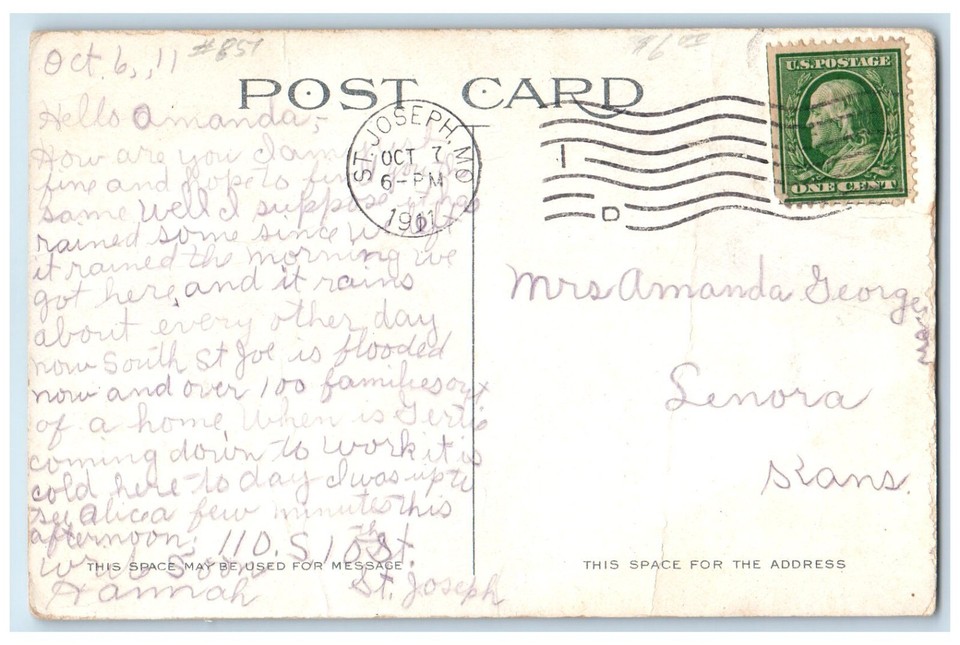 Oct. 6, 11 #851
$6.00
POST CARD
Hello Amanda,-
How are you I am
fine and hope to find you
same Well I suppose it has
rained some since we left
it rained the morning we
got here, and it rains
about every other day
now South St Joe is flooded
now and over 100 families out
of a home, When is Gertie
coming down to work it is
cold here to day I was up to
see Alice a few minutes this
afternoon.
110. S 10th St.
Write Soon
St. Joseph
Hannah
THIS SPACE MAY BE USED FOR MESSAGE
ST. JOSEPH, MO
OCT 7
6-PM
1911
I
D
U.S. POSTAGE
ONE CENT
Mrs Amanda Georgeson
Lenora
Kans.
THIS SPACE FOR THE ADDRESS